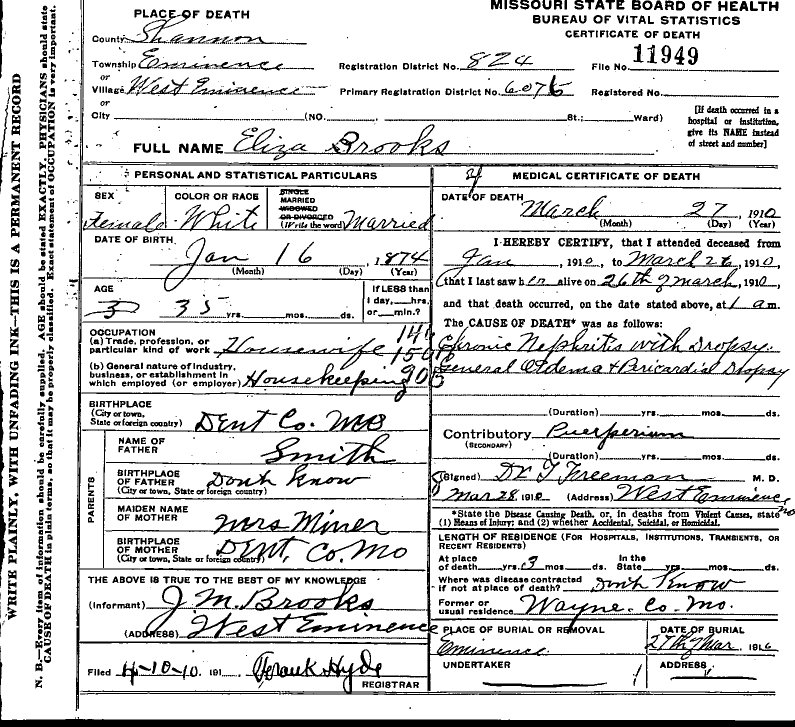 WRITE PLAINLY, WITH UNFADING INK—THIS IS A PERMANENT RECORD
N. B.—Every item of information should be carefully supplied. AGE should be stated EXACTLY. PHYSICIANS should state
CAUSE OF DEATH in plain terms, so that it may be properly classified. Exact statement of OCCUPATION is very important.
PLACE OF DEATH
County Shannon
Township Eminence
or
Village West Eminence
or
City (NO. St.; Ward)
MISSOURI STATE BOARD OF HEALTH
BUREAU OF VITAL STATISTICS
CERTIFICATE OF DEATH
Registration District No. 824 File No. 11949
Primary Registration District No. Registered No.
[If death occurred in a
hospital or institution,
give its NAME instead
of street and number]
FULL NAME Eliza Brooks
PERSONAL AND STATISTICAL PARTICULARS
SEX
Female
COLOR OR RACE
White
SINGLE
MARRIED
WIDOWED
OR DIVORCED
(Write the word) Married
DATE OF BIRTH
Jan 16, 1874
(Month) (Day) (Year)
AGE
35 yrs. mos. ds.
If LESS than
1 day, hrs.
or min.?
OCCUPATION
(a) Trade, profession, or
particular kind of work Housewife
(b) General nature of industry,
business, or establishment in
which employed (or employer) Housekeeping
BIRTHPLACE
(City or town,
State or foreign country) Dent Co. Mo
PARENTS
NAME OF
FATHER Smith
BIRTHPLACE
OF FATHER
(City or town, State or foreign country) Dont Know
MAIDEN NAME
OF MOTHER Mrs Miner
BIRTHPLACE
OF MOTHER
(City or town, State or foreign country) Dent, Co. Mo
THE ABOVE IS TRUE TO THE BEST OF MY KNOWLEDGE
(Informant) J. M. Brooks
(ADDRESS) West Eminence
Filed 4-10-10 191 Frank Hyde
REGISTRAR
MEDICAL CERTIFICATE OF DEATH
DATE OF DEATH
March 27, 1910
(Month) (Day) (Year)
I HEREBY CERTIFY, that I attended deceased from
Jan, 1910, to March 26, 1910,
that I last saw her alive on 26th of march, 1910,
and that death occurred, on the date stated above, at 1 am.
The CAUSE OF DEATH* was as follows:
Chronic Nephritis with Dropsy.
General Oedema & Pericardial Dropsy
(Duration) yrs. mos. ds.
Contributory Puerperium
(SECONDARY)
(Duration) yrs. mos. ds.
(Signed) Freeman M. D.
Mar 28, 1910 (Address) West Eminence
*State the Disease Causing Death, or, in deaths from Violent Causes, state
(1) Means of Injury; and (2) whether Accidental, Suicidal, or Homicidal.
LENGTH OF RESIDENCE (FOR HOSPITALS, INSTITUTIONS, TRANSIENTS, OR
RECENT RESIDENTS)
At place
of death yrs. 3 mos. ds.
In the
State yrs. mos. ds.
Where was disease contracted
if not at place of death? Dont Know
Former or
usual residence Wayne Co Mo.
PLACE OF BURIAL OR REMOVAL
Eminence
DATE OF BURIAL
27th Mar 1910
UNDERTAKER
ADDRESS